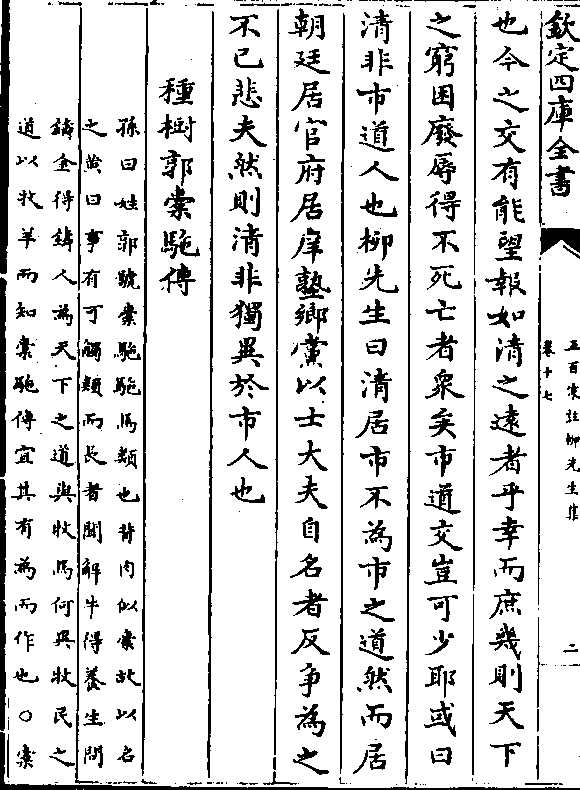 欽定四庫全書
五百家註柳先生集
卷十七
二
也今之交有能望報如清之遠者乎幸而庶幾則天下
之窮困廢辱得不死亡者衆矣市道交豈可少耶或曰
清非市道人也柳先生曰清居市不為市之道然而居
朝廷居官府居庠塾鄉黨以士大夫自名者反争為之
不已悲夫然則清非獨異於市人也
種樹郭橐駞傳
孫曰姓郭號橐駞駞馬類也背肉似橐故以名
之黄曰事有可觸類而長者聞解牛得養生問
鑄金得鑄人為天下之道與牧馬何異牧民之
道以牧羊而知橐駞傳宜其有為而作也○橐